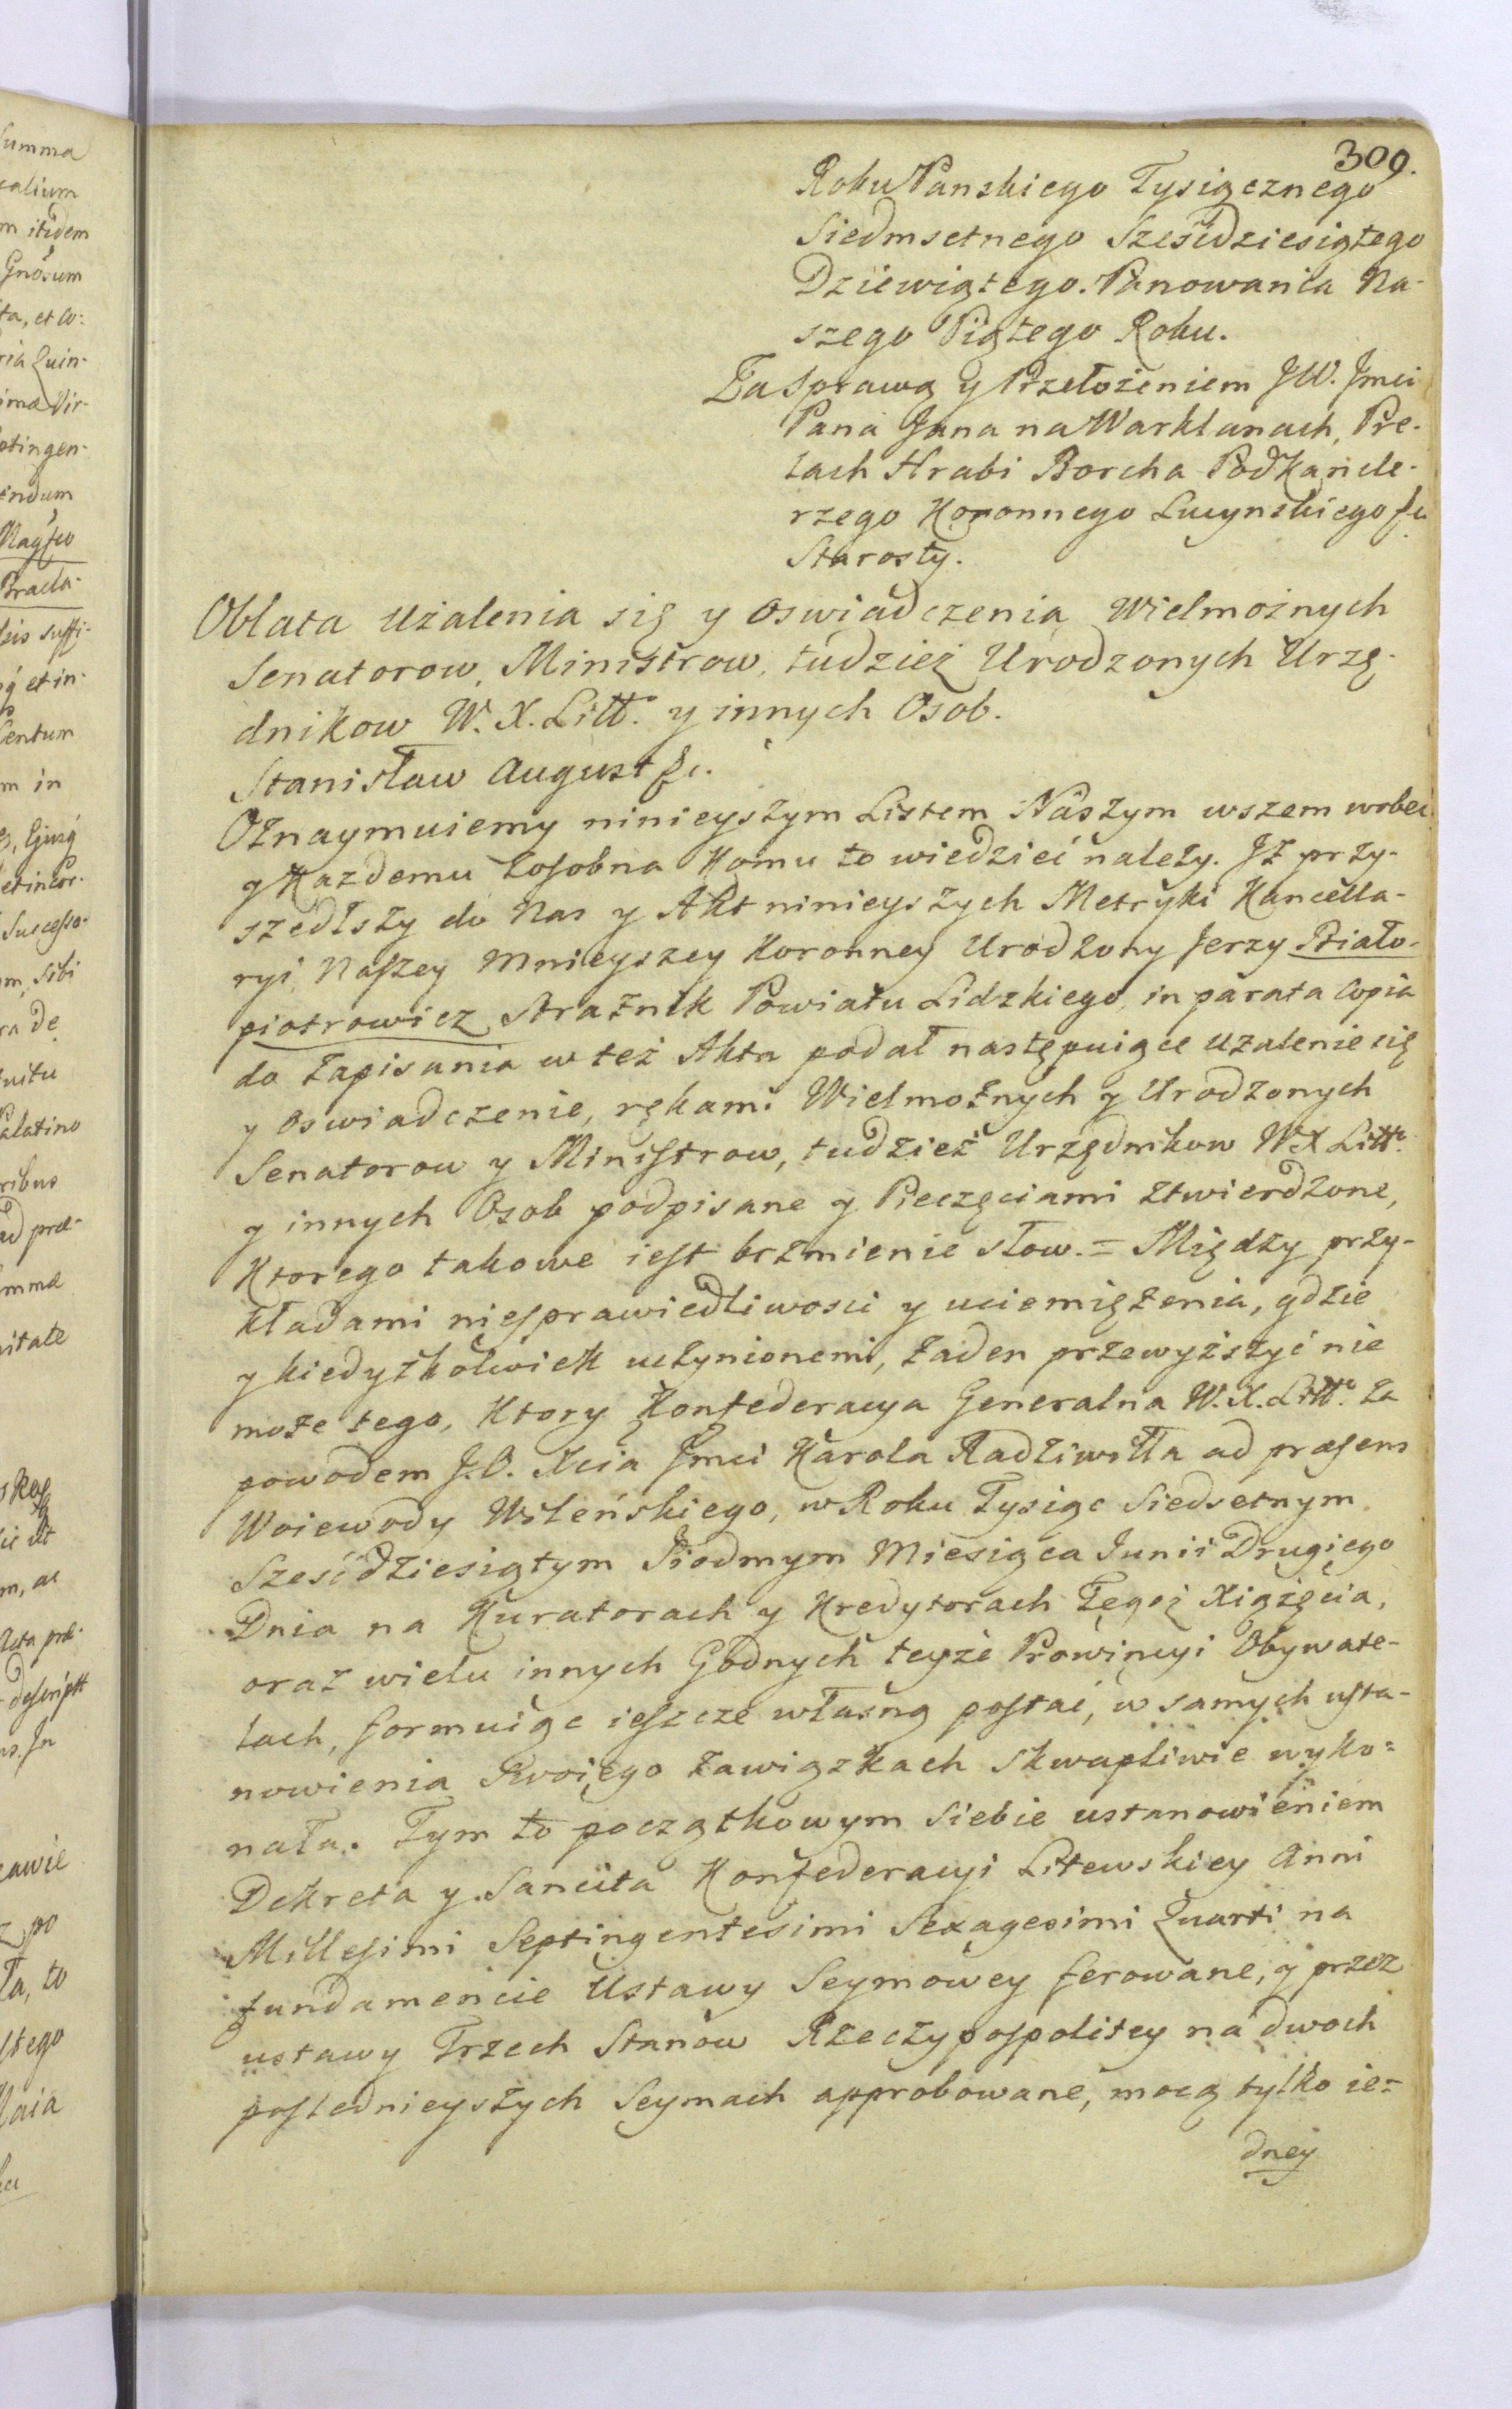 309.
Roku Panskiego Tysiącznego
Siedmsetnego Sześćdziesiątego
Dziewiątego. Panowania Na-
szego Piątego Roku.
Za Sprawą y Przełożeniem JW. Jmci
Pana Jana na Warklanach, Pre-
lach Hrabi Borcha Podkancle-
rzego Koronnego Lucynskiego &c
Starosty.
Oblata Użalenia się y Oswiadczenia Wielmożnych
Senatorow, Ministrow, tudzież Urodzonych Urzę-
dnikow W. X. Litt. y innych Osob.
Stanisław August &c.
Oznaymuiemy ninieyszym Listem Naszym wszem wobec
y Każdemu zosobna Komu to wiedzieć należy. Iż przy-
szedłszy do Nas y Akt ninieyszych Metryki Kancella-
ryi Naszey Mnieyszey Koronney Urodzony Jerzy Biało-
piotrowicz Strażnik Powiatu Lidzkiego in parata Copia
do Zapisania w też Akta podał następuiące Użalenie się
y Oswiadczenie, rękami Wielmożnych y Urodzonych
Senatorow y Ministrow, tudzież Urzędnikow W.X Litt.
y innych Osob podpisane y Pieczęciami ztwierdzone,
Ktorego takowe iest brzmienie słow. = Między przy-
kładami niesprawiedliwosci y uciemiężenia, gdzie
y kiedyżkolwiek uczynionemi, żaden przewyższyć nie
może tego, Ktory Konfederacya Generalna W. X. Litt. za
powodem J. O. Xcia Jmci Karola Radziwiłła ad præsens
Woiewody Wileńskiego, w Roku Tysiąc Siedsetnym
Sześćdziesiątym Siodmym Miesiąca Junii Drugiego
Dnia na Kuratorach y Kredytorach Tegoż Xiążęcia,
oraz wielu innych Godnych teyże Prowincyi Obywate-
lach, formuiąc ieszcze własną postać, w samych usta-
nowienia Swoiego zawiązkach skwapliwie wyko=
nała. Tym to początkowym Siebie ustanowieniem
Dekreta y Sancita Konfederacyi Litewskiey Anni
Millesimi Septingentesimi Sexagesimi Quarti na
fundamencie Ustawy Seymowey ferowane, y przez
ustawy Trzech Stanow Rzeczypospolitey na dwoch
poslednieyszych Seymach approbowane, mocą tylko ie=
dney